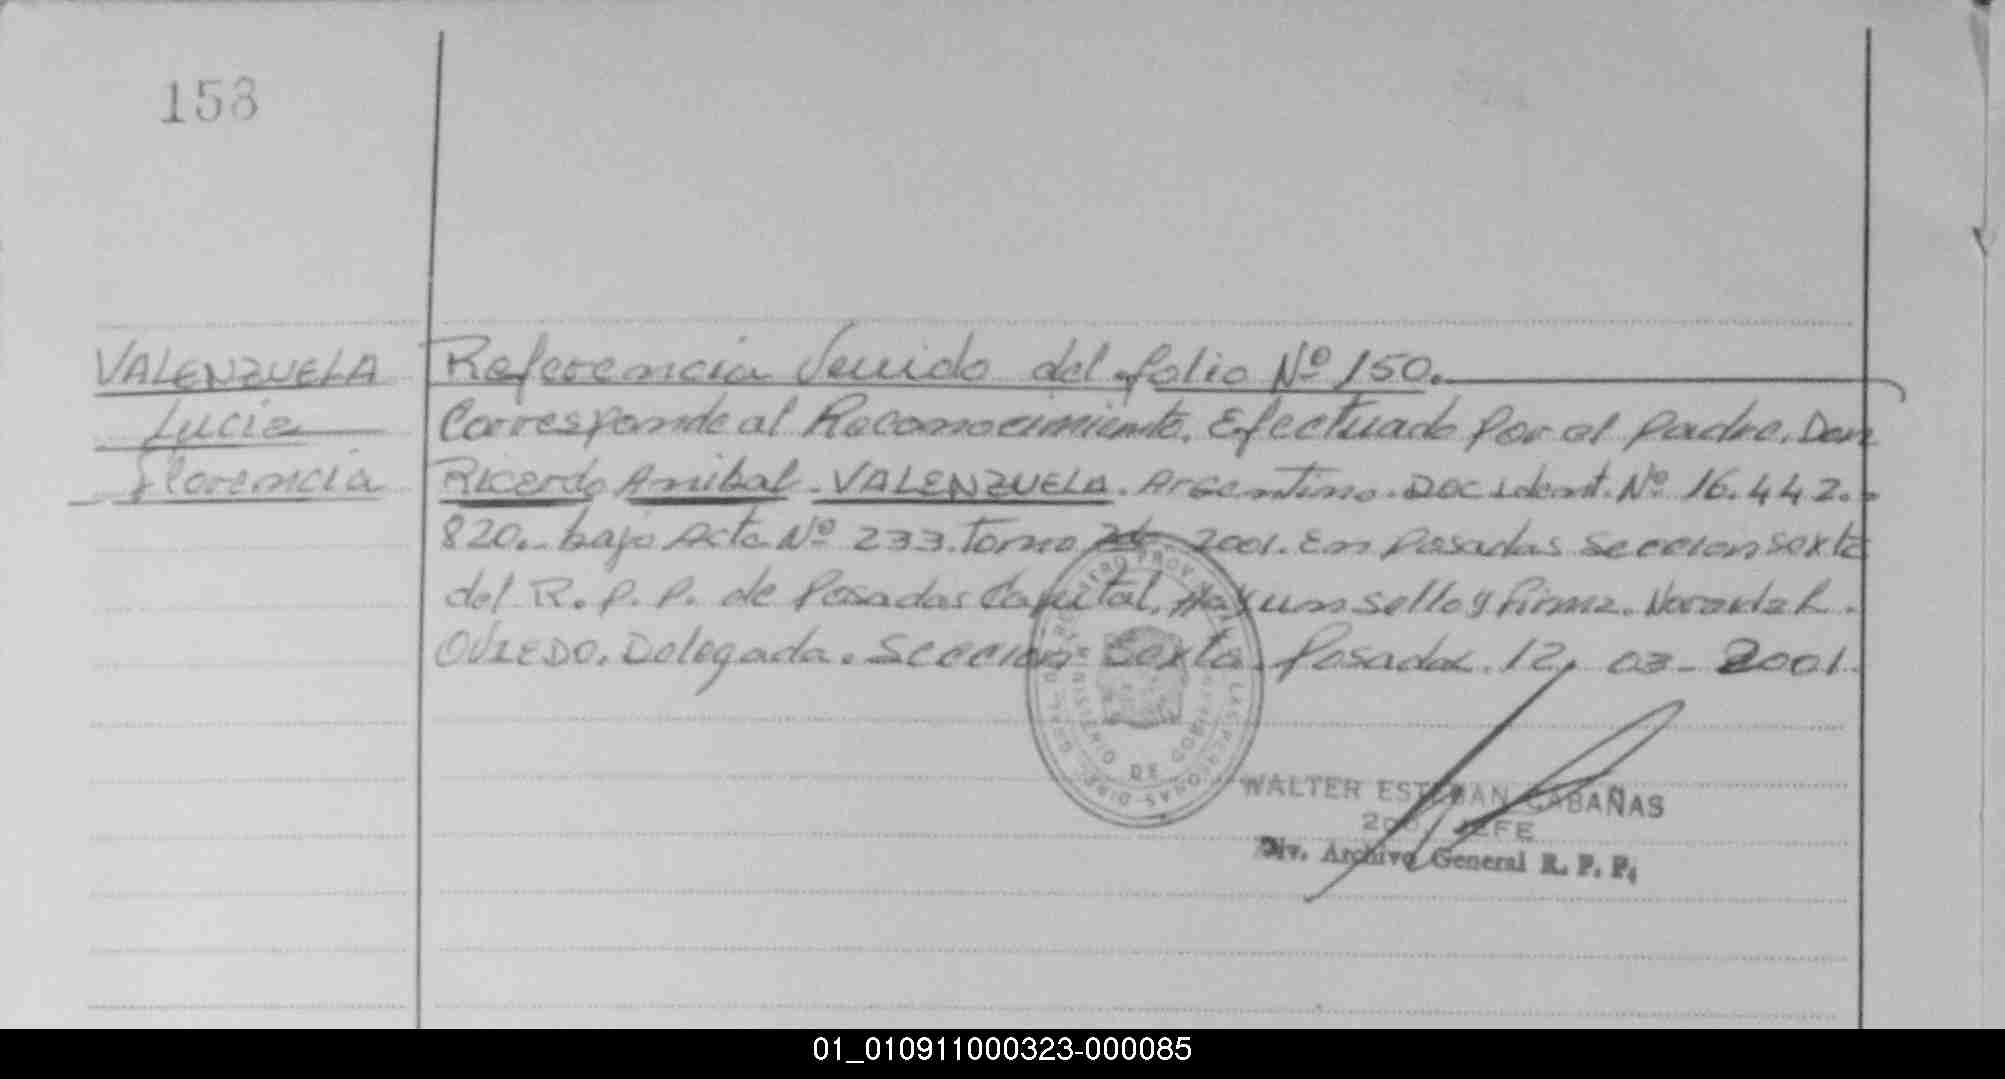 158
VALENZUELA
Lucia
Florencia
Referencia Venido del folio Nº 150.
Corresponde al Reconocimiento. Efectuado por el padre. Don
Ricardo Anibal. VALENZUELA. Argentino. Doc ident. Nº 16.442.-
820.- bajo Acta Nº 233. Tomo 2001. En Posadas Seccion sexta
del R. P. P. de Posadas Capital, Hay un sello y firma.
OVIEDO. Delegada. Seccion Sexta Posadas. 12, 03 - 2001.
MINISTERIO DE GOBIERNO
WALTER ESTEBAN CABAÑAS
2do. JEFE
Div. Archivo General R. P. P.
01_010911000323-000085